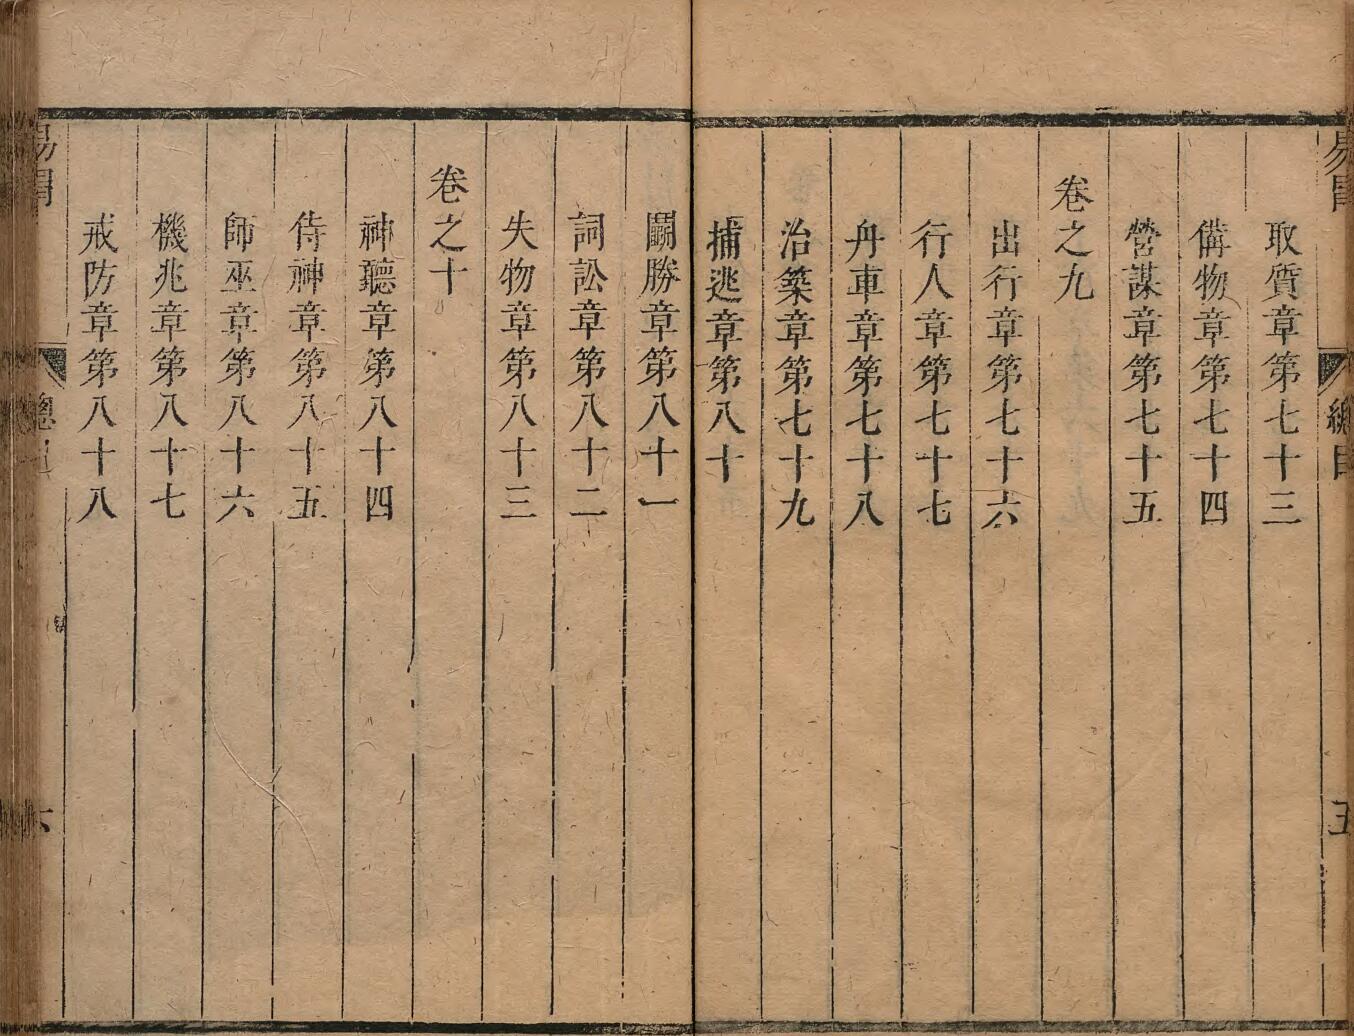 取質章第七十三
備物章第七十四
營謀章第七十五
卷之九
出行章第七十六
行人章第七十七
舟車章第七十八
治築章第七十九
捕逃章第八十
鬭勝章第八十一
詞訟章第八十二
失物章第八十三
卷之十
神聽章第八十四
侍神章第八十五
師巫章第八十六
機兆章第八十七
戒防章第八十八